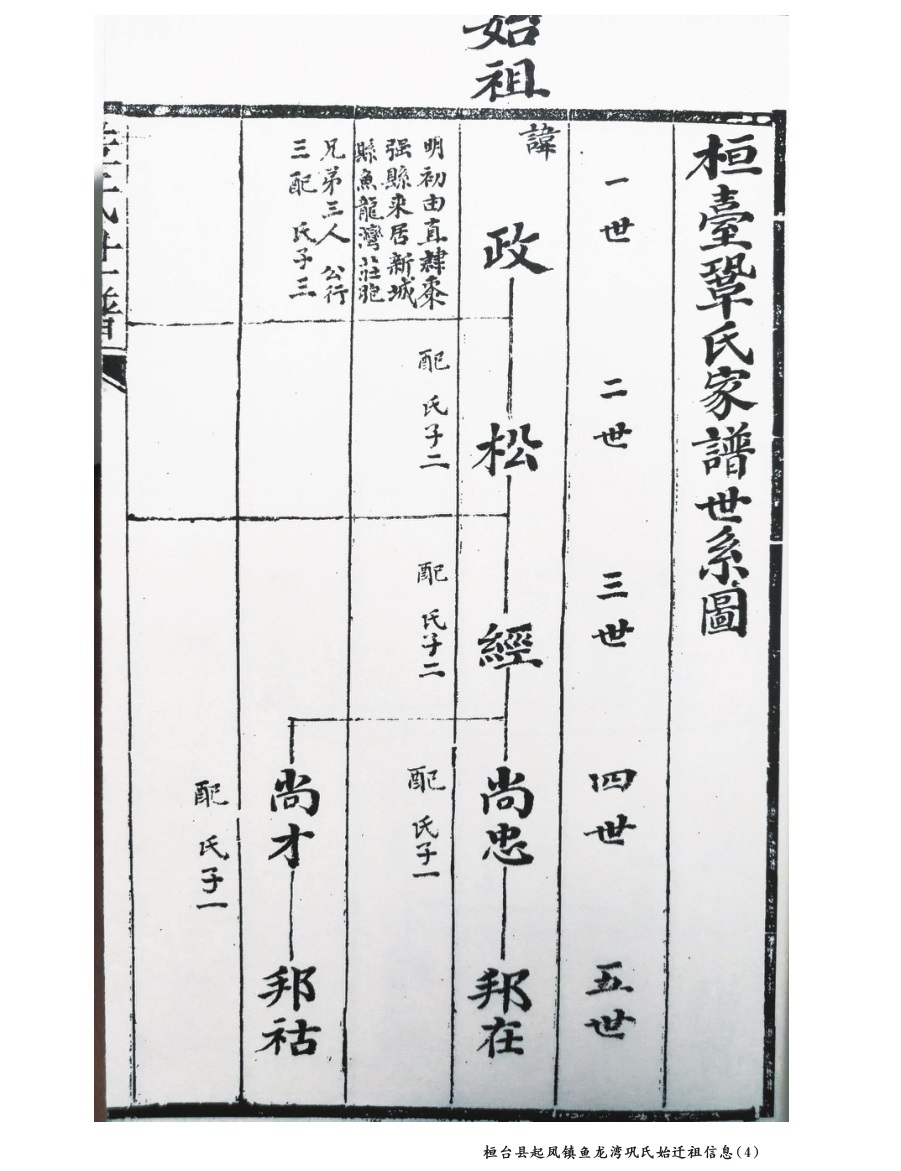 始祖
桓臺鞏氏家譜世系圖
一世
二世
三世
四世
五世
諱
政
松
經
尚忠
邦在
明初由直隸棗
强縣來居新城
縣魚龍灣莊胞
兄弟三人 公行
三配 氏子三
配 氏子二
配 氏子二
配 氏子一
尚才
邦祜
配 氏子一
桓台县起凤镇鱼龙湾巩氏始迁祖信息(4)